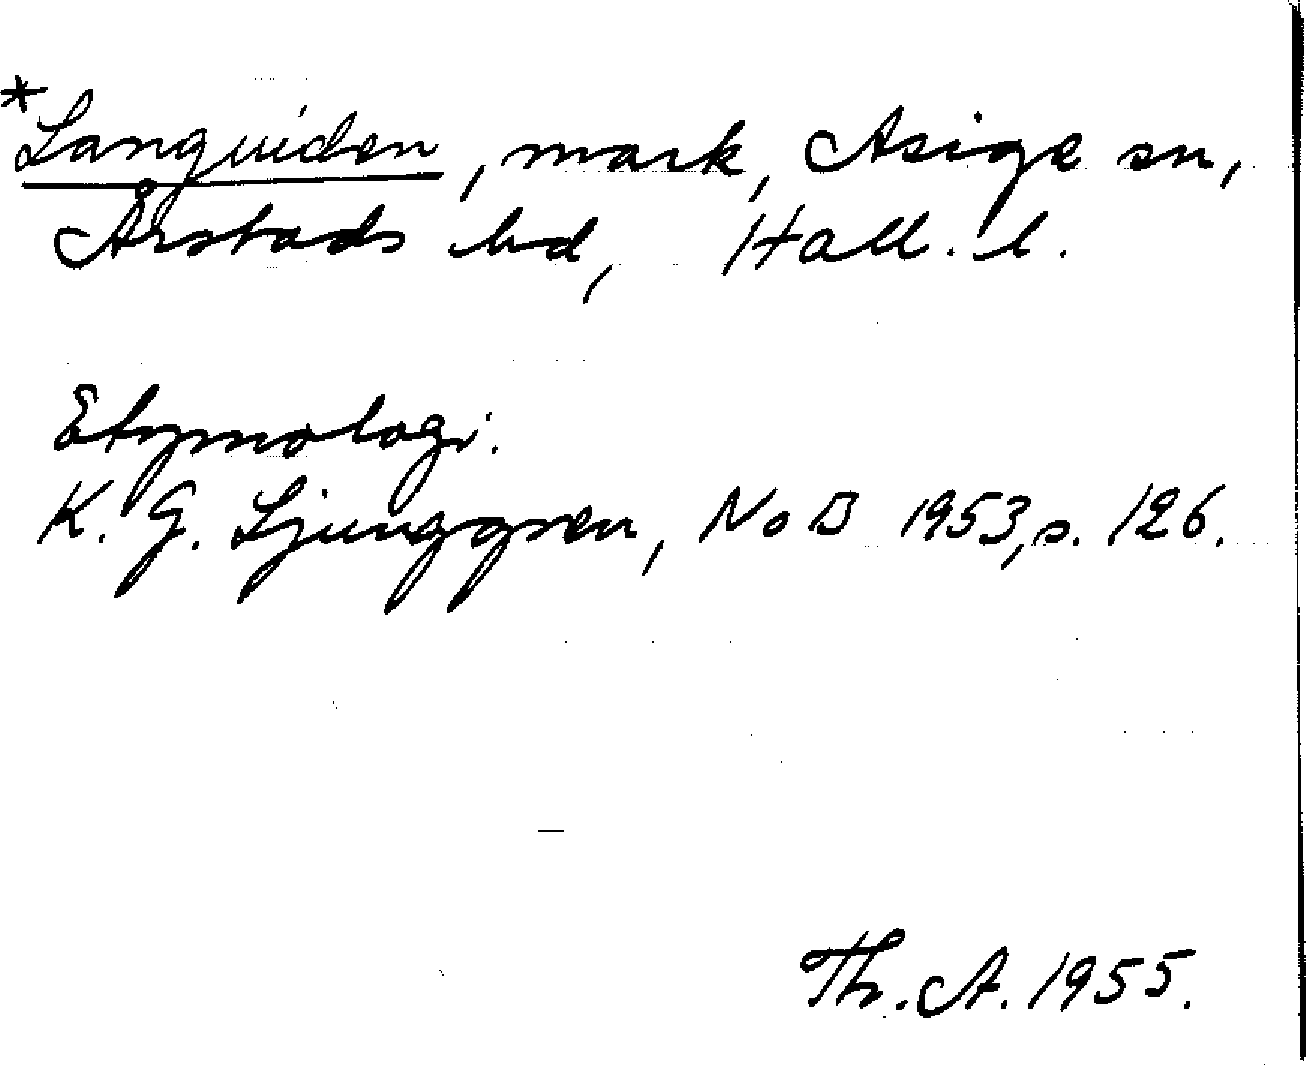 *Languiden, mark, Asige sn,
Årstads hd, Hall. l.
Etymologi.
K. G. Ljunggren, NoB 1953, s. 126.
Th. A. 1955.